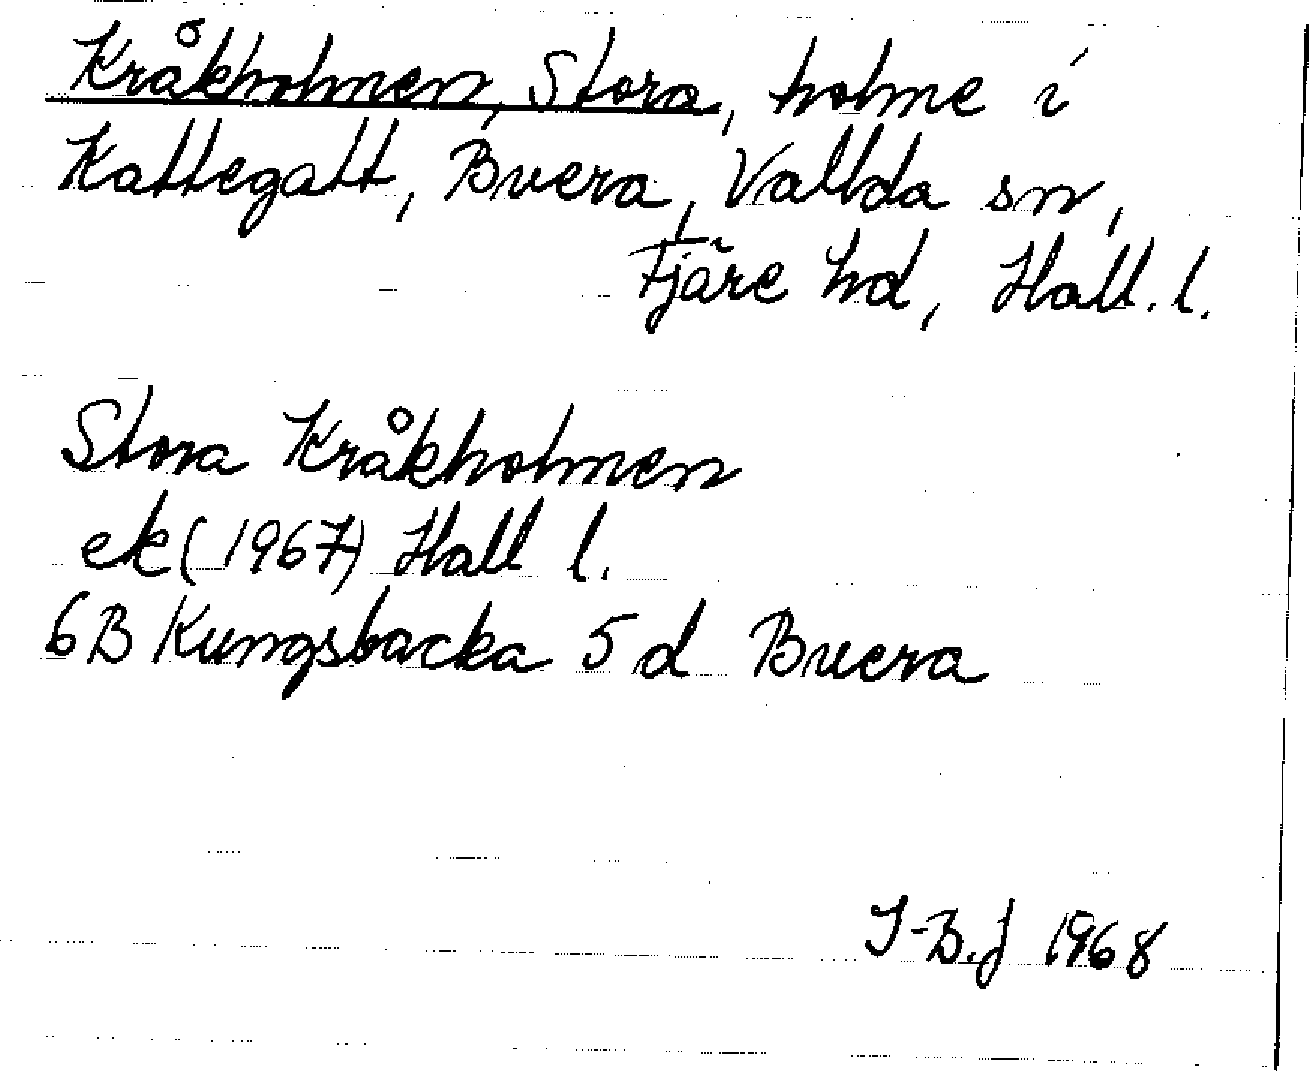 Kråkholmen, Stora, holme i
Kattegatt, Buera, Vallda sn,
Fjäre hd, Hall. l.
Stora Kråkholmen
ek (1967) Hall l.
6B Kungsbacka 5 d Buera
I-B.J 1968